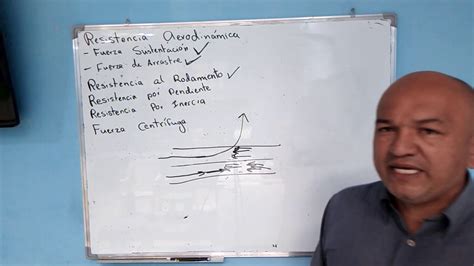 Resistencia Aerodinámica
- Fuerza Sustentación ✓
- Fuerza de Arrastre ✓
Resistencia al Rodamiento ✓
Resistencia por Pendiente
Resistencia Por Inercia
Fuerza Centrífuga